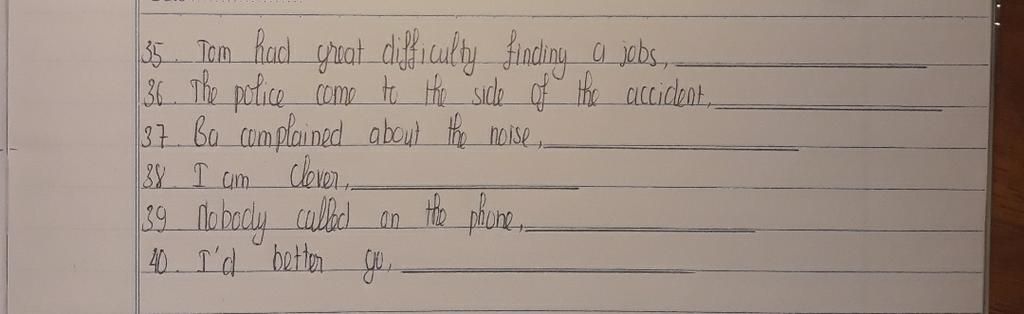 35. Tom had great difficulty finding a jobs,
36. The police come to the side of the accident,
37. Ba complained about the noise,
38. I am clever,
39. Nobody called on the phone,
40. I'd better go,